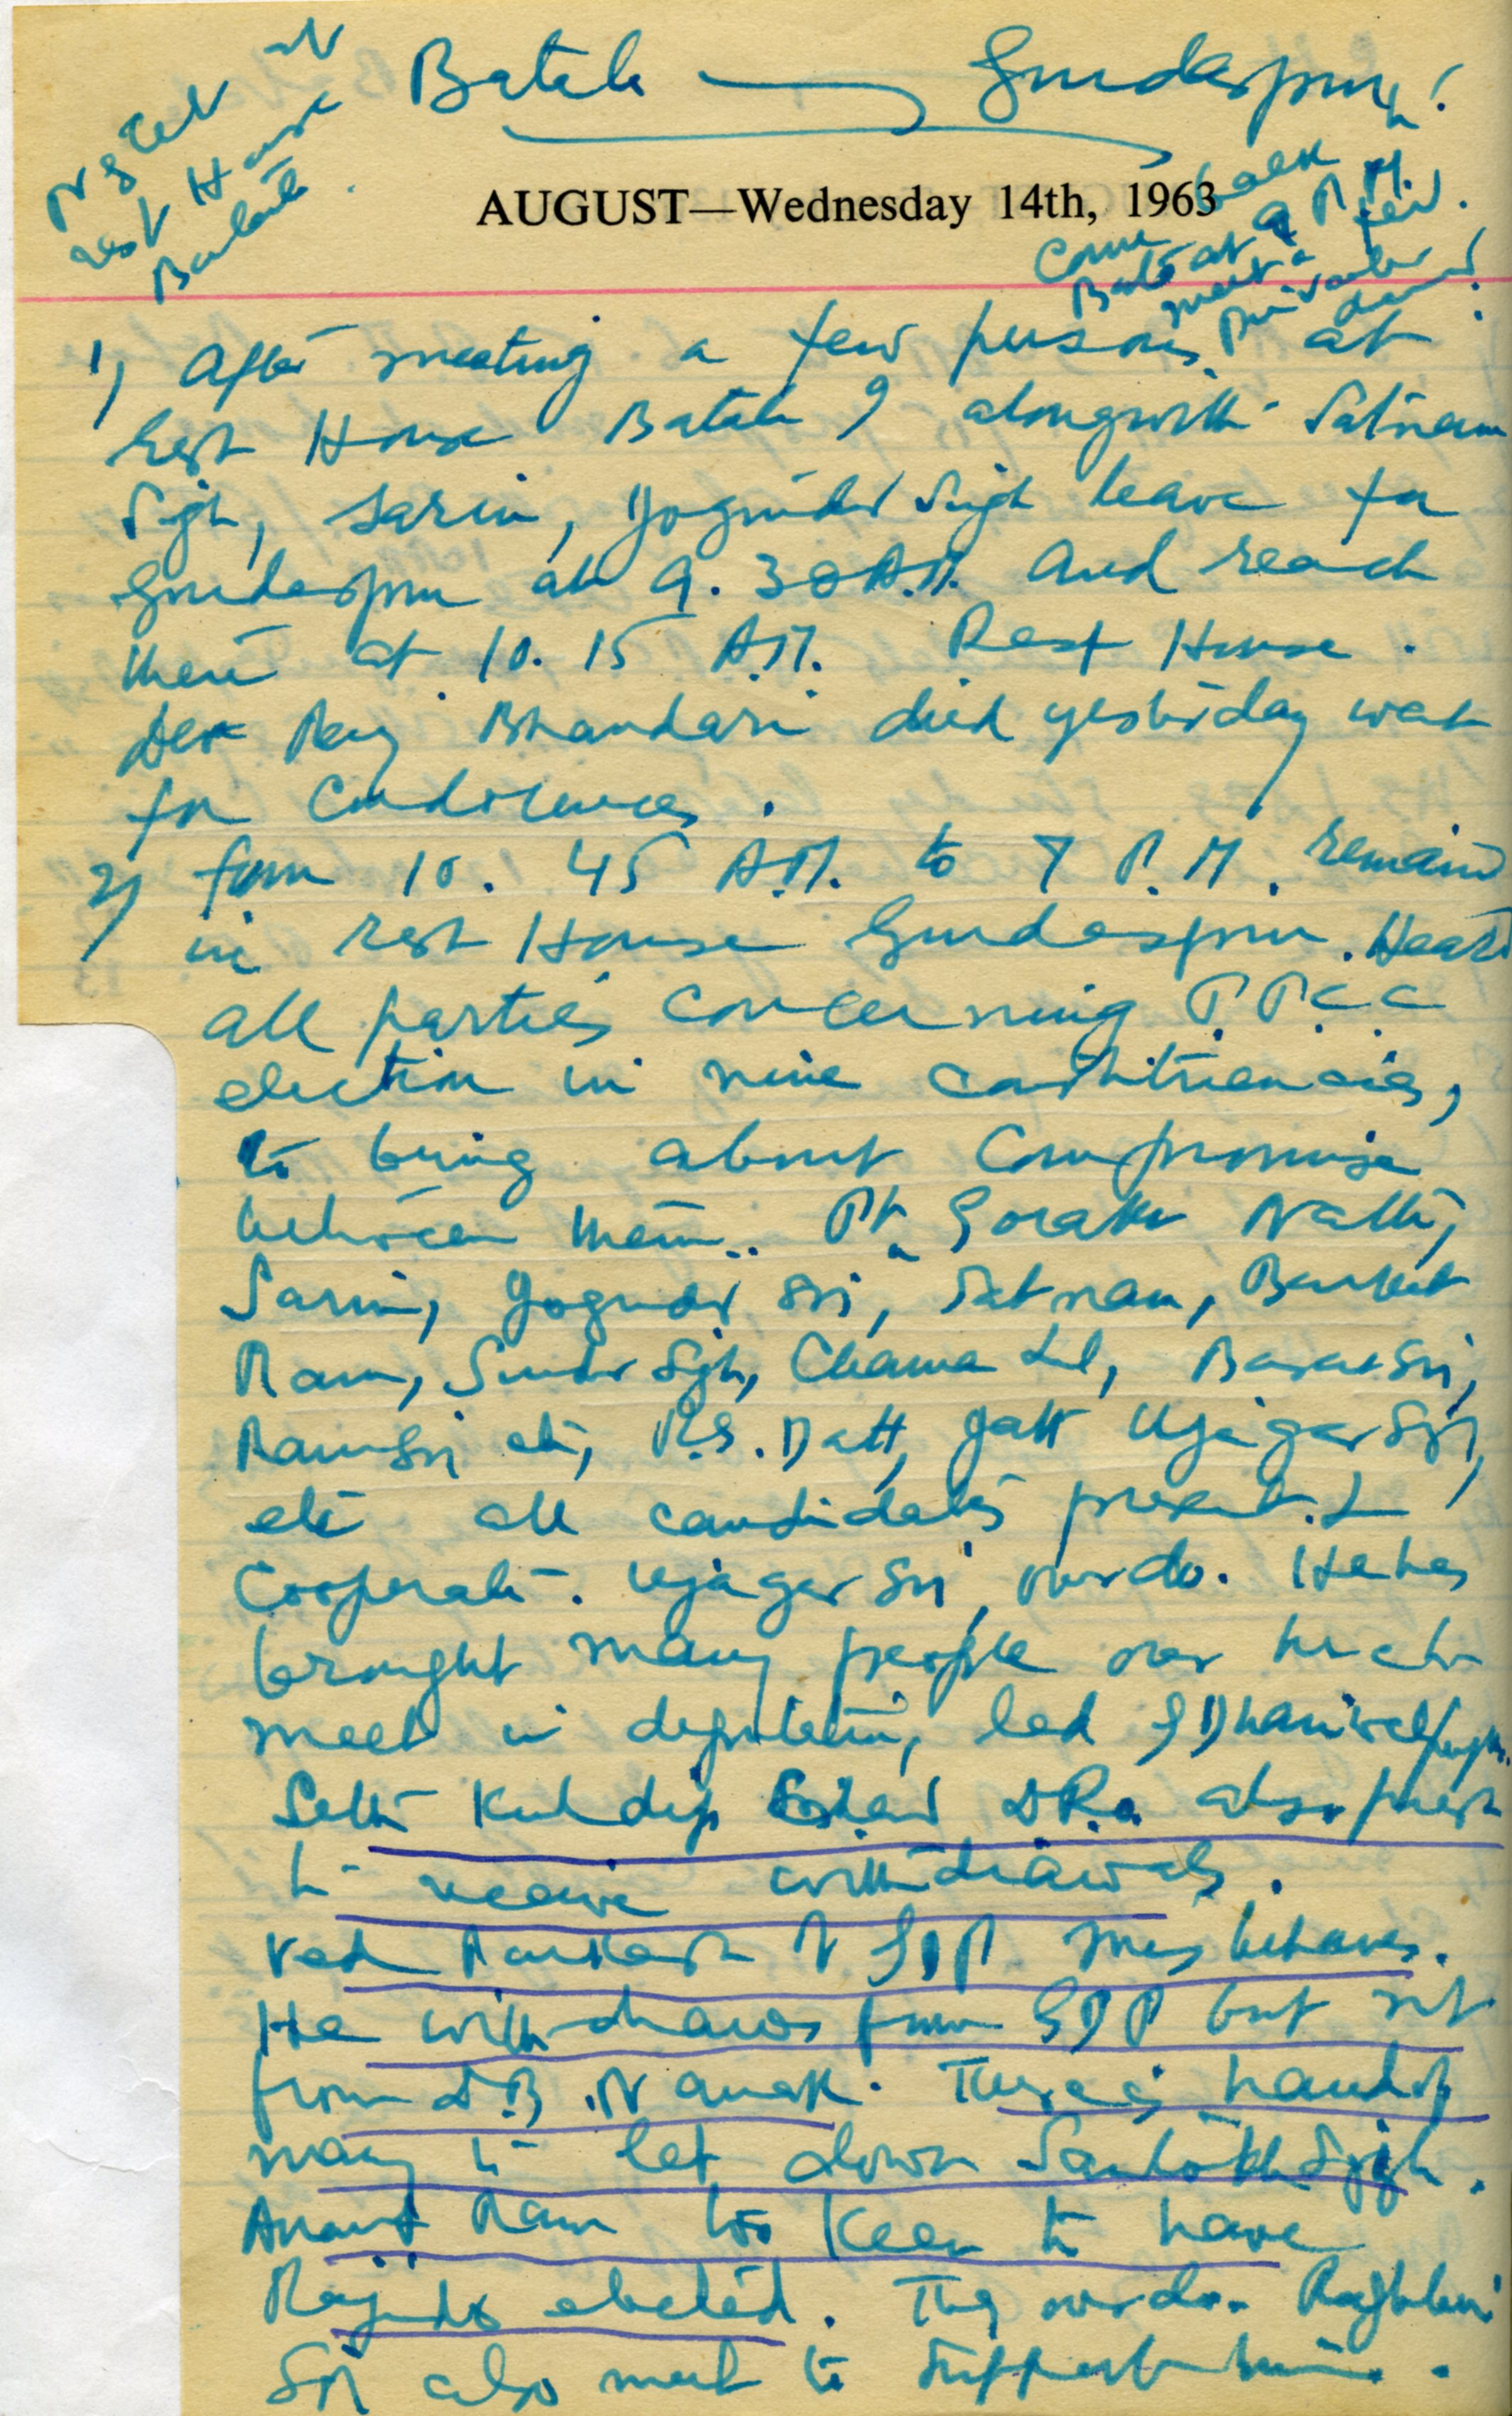 Batala — Gurdaspur!
Night at
rest House
Batala
AUGUST—Wednesday 14th, 1963
Come back
Batala at 9 P.M.
meet a few
1) After meeting a few persons at
Rest House Batala I alongwith Satnam
Singh, Sarin, Yoginder Singh leave for
Gurdaspur at 9.30 A.M. and reach
there at 10.15 A.M. Rest House.
Dev Raj Bhandari died yesterday went
for condolences.
2) from 10.45 A.M. to 7 P.M. remained
in rest House Gurdaspur. Heard
all parties concerning P.P.C.C
election in nine constituencies,
to bring about compromise
between them.. Pt. Gorakh Nath,
Sarin, Yoginder Sri, Satnam, Barkat
Ram, Sunder Sgh, Chaman Lal,
Ram Sri etc, R.S. Datt, Jatt Ujagar Sri,
etc all candidates present. I
Cooperate. Ujagar Sri, overdo. He has
brought many people over here to
meet in deputation, led by Dhariwal people.
Sethi Kuldip DRO also present
to receive withdrawals.
Ved Parkash of GDP misbehaves.
He withdraws from GDP but not
from D.B. Nanak. There is hand of
many to let down Santokh Singh.
Anant Ram too keen to have
Rajinder elected. They overdo. Raghbir
Sri also meet to support him.